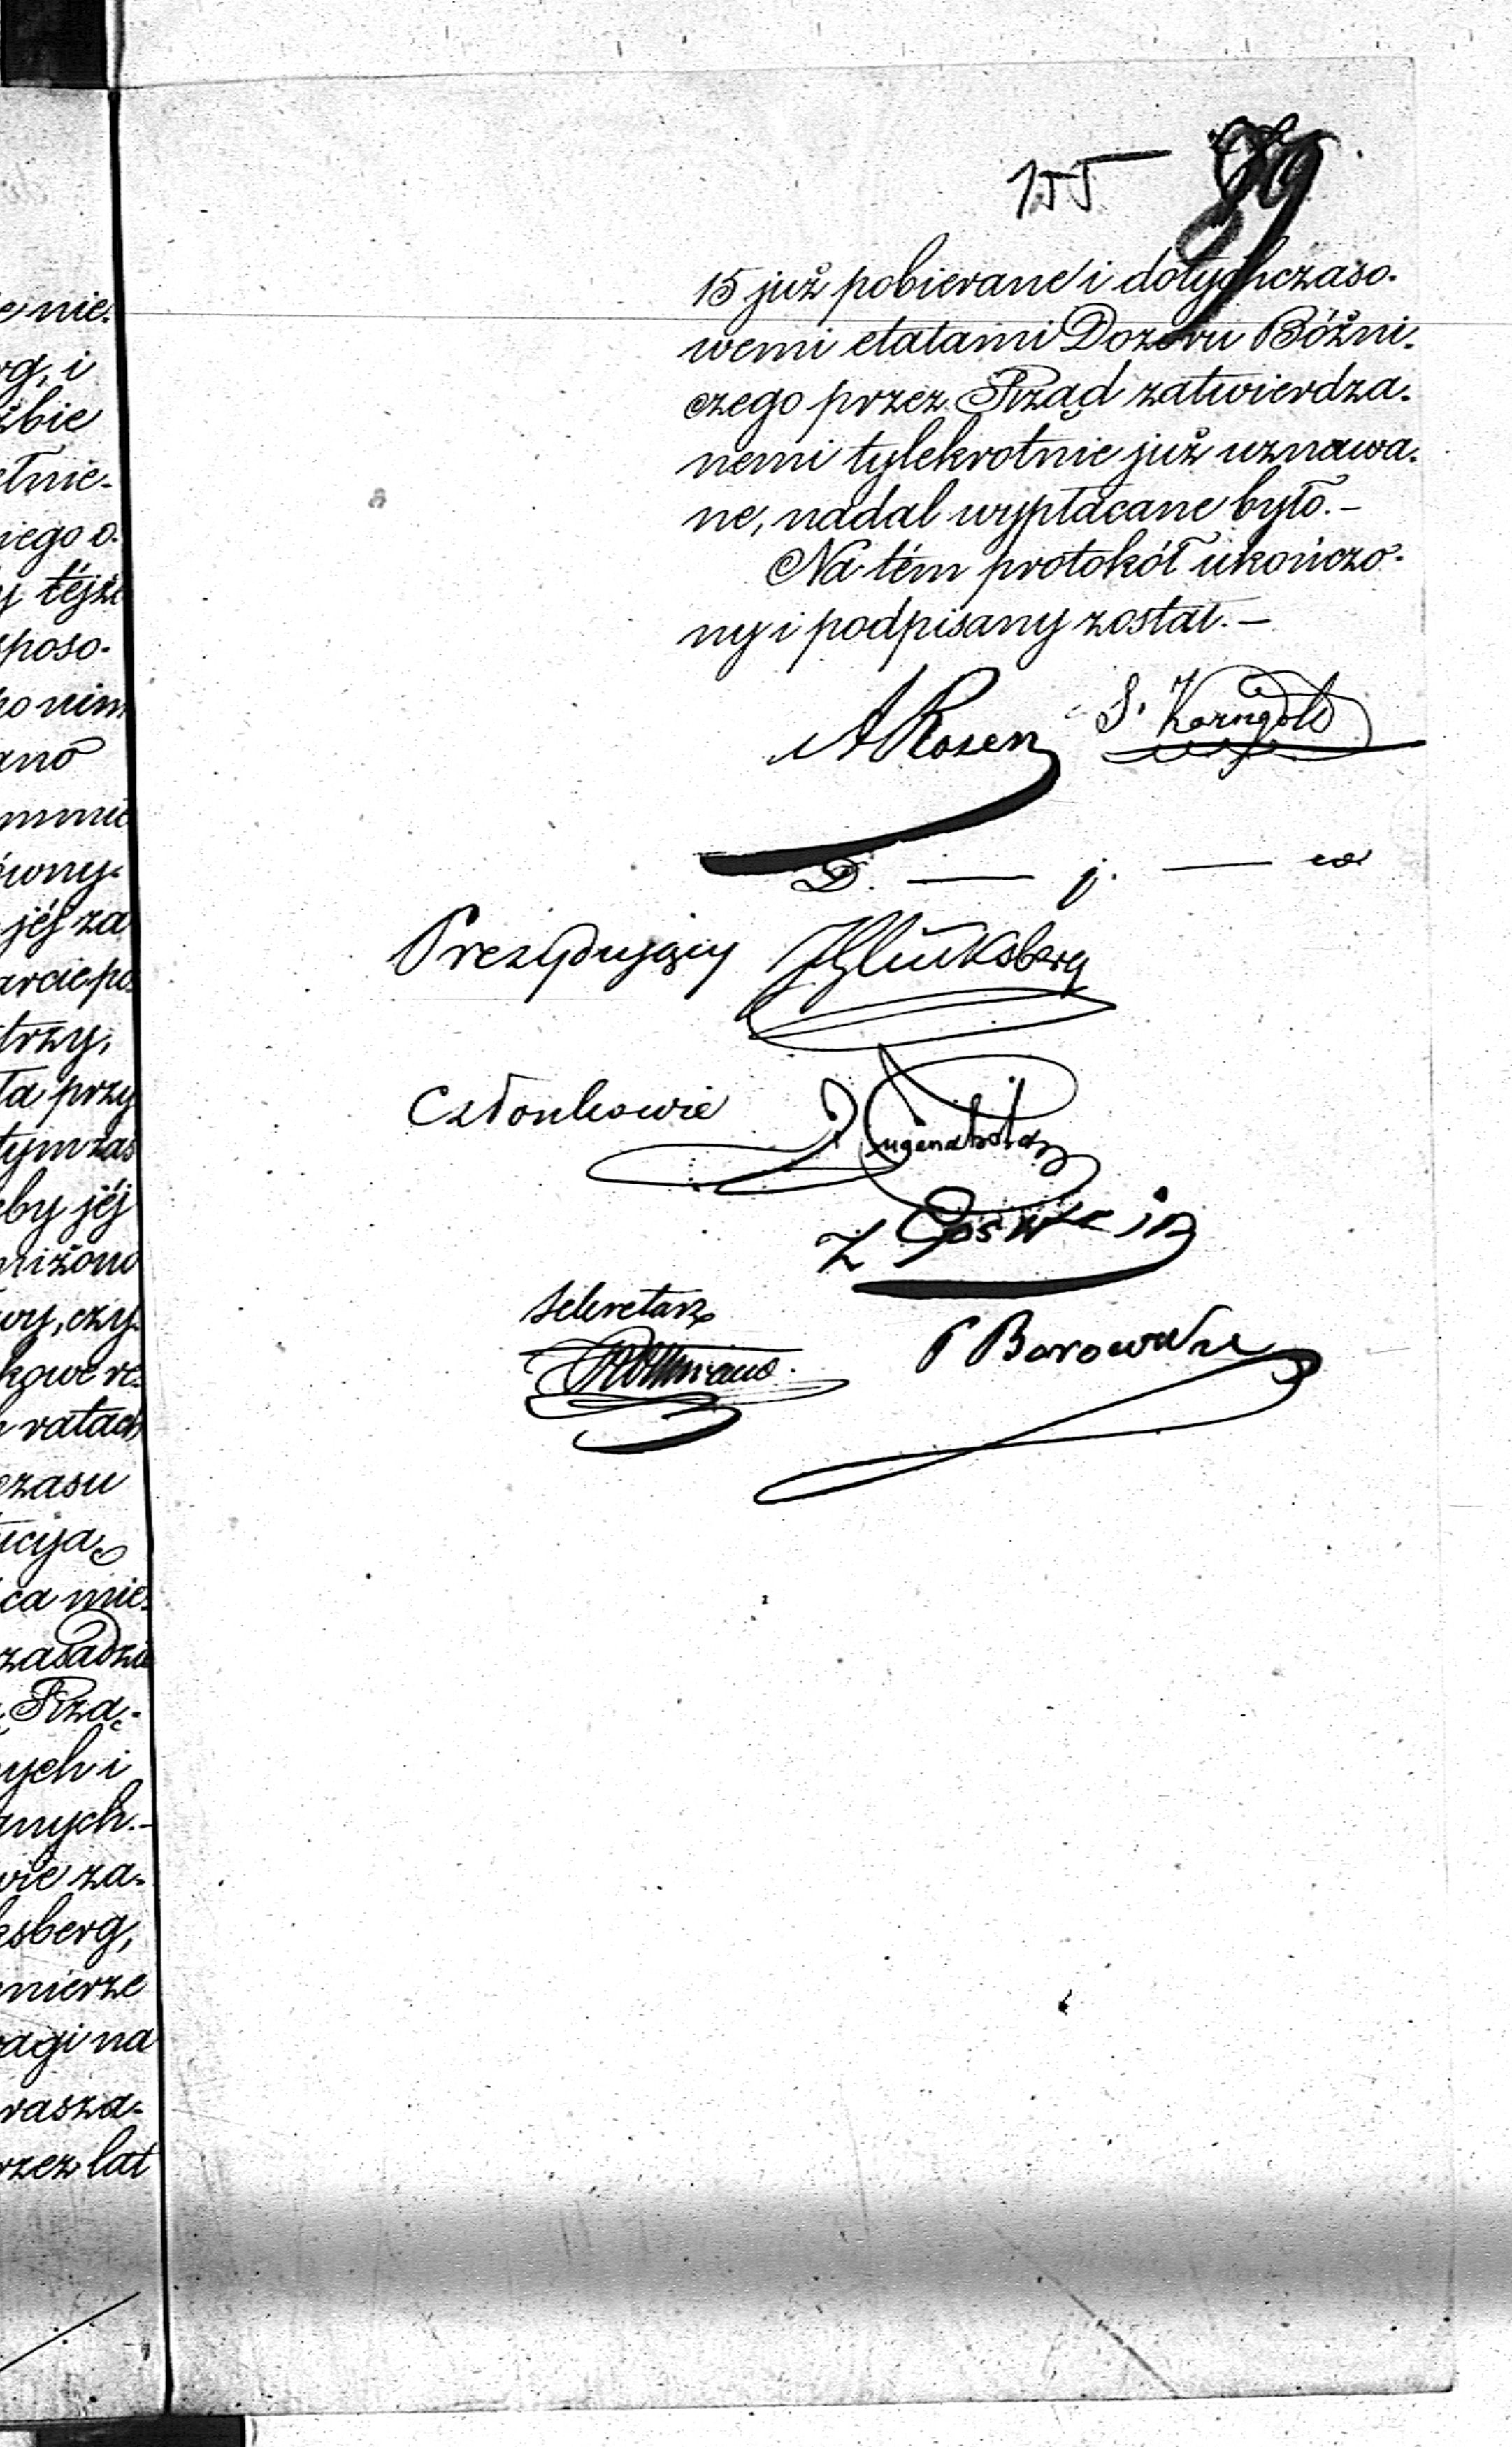 155 89
15 już pobierane i dotychczaso-
wemi etatami Dozoru Bóżni-
czego przez Rząd zatwierdza-
nemi tylekrotnie już uznawa-
ne, nadal wypłacane było.-
Na tém protokół ukończo-
ny i podpisany został.-
A Rosen S. Korngold
D. — j. — w
Prezydujący JGlüksberg
Członkowie
Z Poswein
Sekretarz
Borowski
e nie-
rg, i
żbie
etnie-
niego o-
j téjże
sposo-
ano
ówny-
jéj za
arcie po-
trzy,
ta przy
tymzas
eby jéj
niżono
wy, czy-
kowe re-
ratach
czasu
ucyją
ca mie-
zasadzie
Rzą-
ych i
anych.-
wie za-
ksberg,
mierze
agi na
rasza-
rzez lat